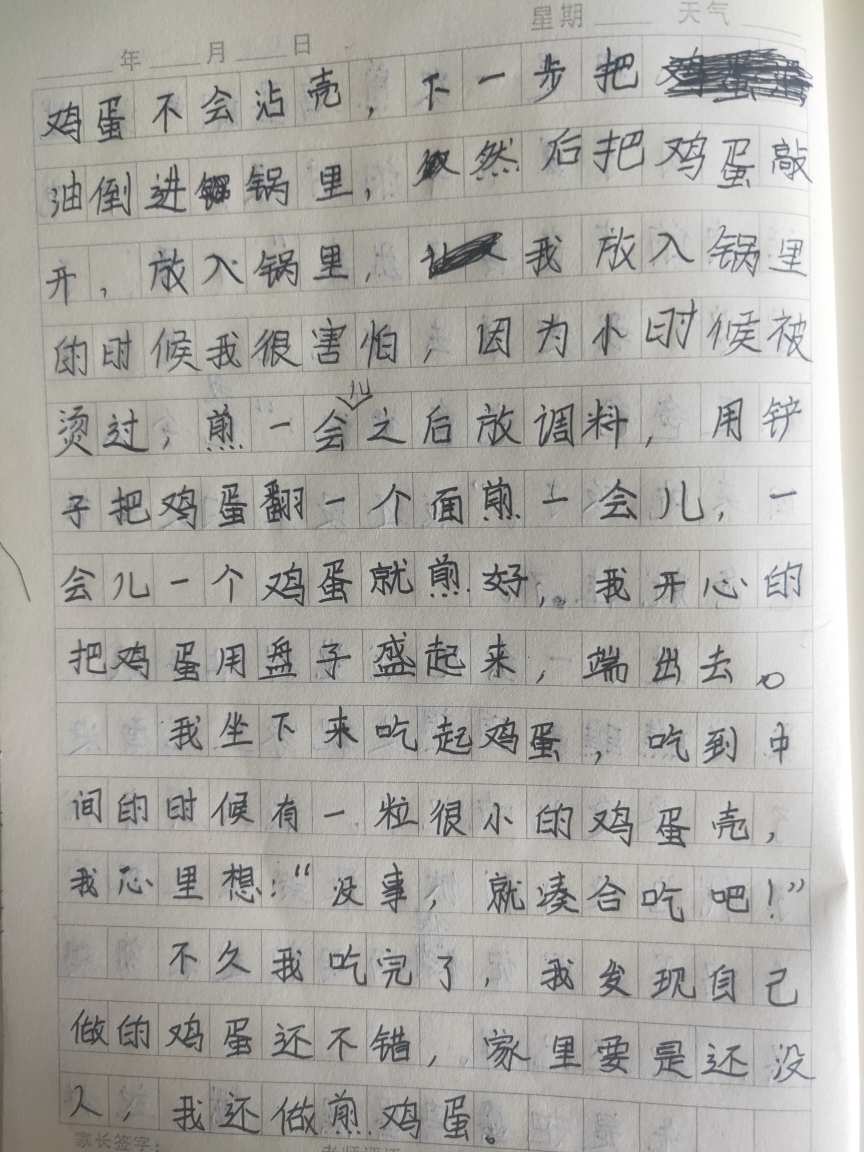 星期 天气
年 月 日
鸡蛋不会沾壳，下一步把
油倒进锅里，然后把鸡蛋敲
开，放入锅里，我放入锅里
的时候我很害怕，因为小时候被
烫过，煎一会儿之后放调料，用铲
子把鸡蛋翻一个面煎一会儿，一
会儿一个鸡蛋就煎好，我开心的
把鸡蛋用盘子盛起来，端出去。
我坐下来吃起鸡蛋，吃到中
间的时候有一粒很小的鸡蛋壳，
我心里想：“没事，就凑合吃吧！”
不久我吃完了，我发现自己
做的鸡蛋还不错，家里要是还没
人，我还做煎鸡蛋。
家长签字：